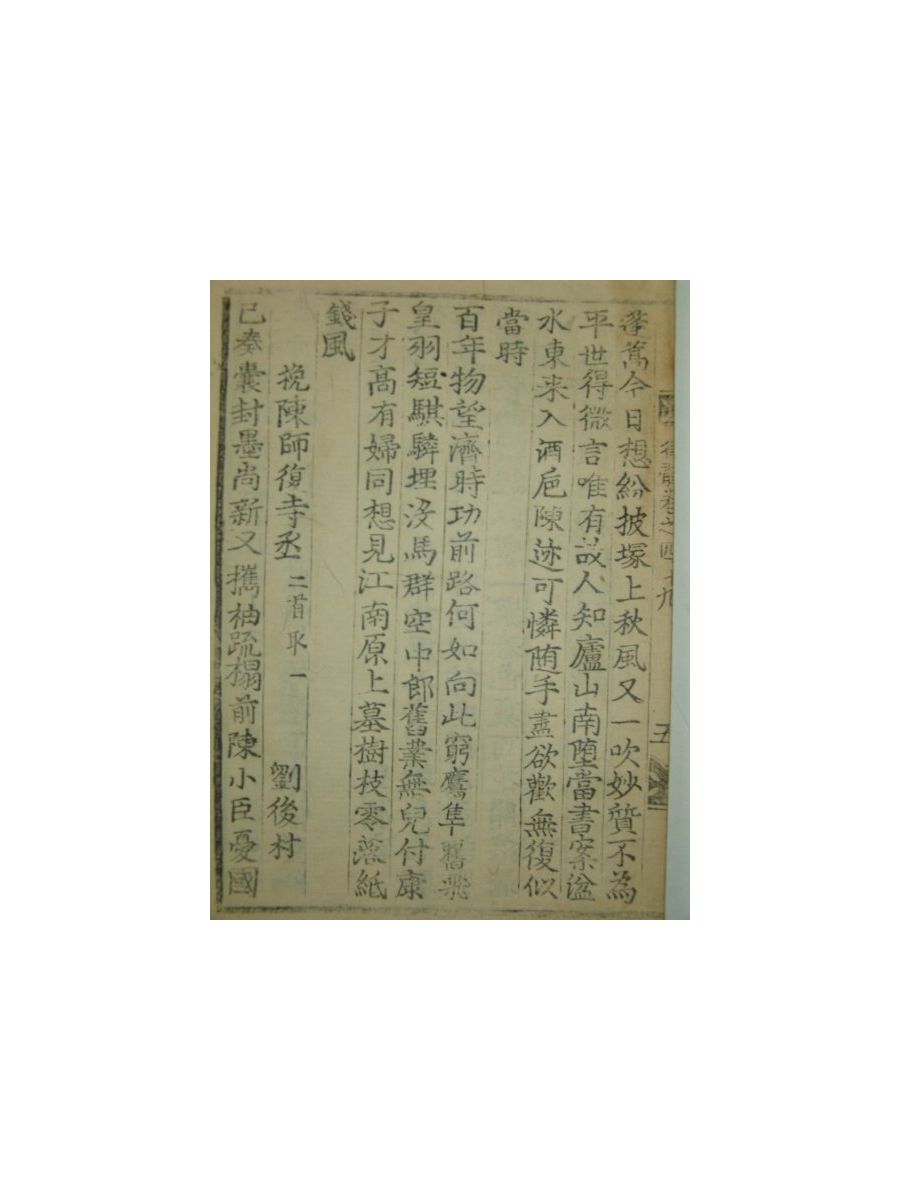 蓬蒿今日想紛披塚上秋風又一吹妙質不為
平世得微言唯有故人知廬山南堕當書案湓
水東来入酒巵陳迹可憐随手盡欲歡無復似
當時
百年物望濟時功前路何如向此窮鷹隼奮飛
皇羽短騏驎埋没馬群空中郎舊業無兒付康
子才高有婦同想見江南原上墓樹枝零落紙
錢風
挽陳師復寺丞 二首取一 劉後村
已奏囊封墨尚新又攜袖疏榻前陳小臣憂國
卷之四十九
五